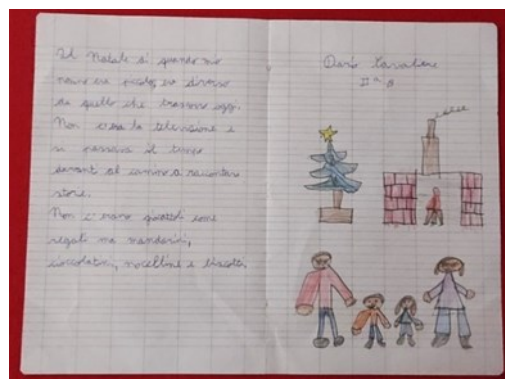 Il Natale di quando mio
nonno era piccolo, era diverso
da quello che trascorro oggi.
Non c'era la televisione e
si passava il tempo
davanti al camino a raccontare
storie.
Non c'erano giocattoli come
regali ma mandarini,
cioccolatini, noccelline e biscotti.
Dario
II a B